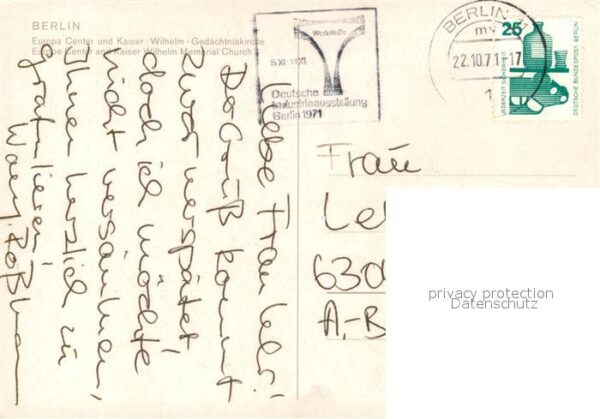 BERLIN
Europa Center und Kaiser-Wilhelm-Gedächtniskirche
Europe Center and Kaiser Wilhelm Memorial Church
Werkstoffe
Deutsche
Industrieausstellung
Berlin 1971
BERLIN
mv
22.10.71-17
1
25
JEDERZEIT SICHERHEIT
DEUTSCHE BUNDESPOST BERLIN
Liebe Frau
Der Gruß kommt
zwar verspätet
doch ich möchte
nicht versäumen
Ihnen herzlich zu
gratulieren!
Frau
630
A.-B
privacy protection
Datenschutz